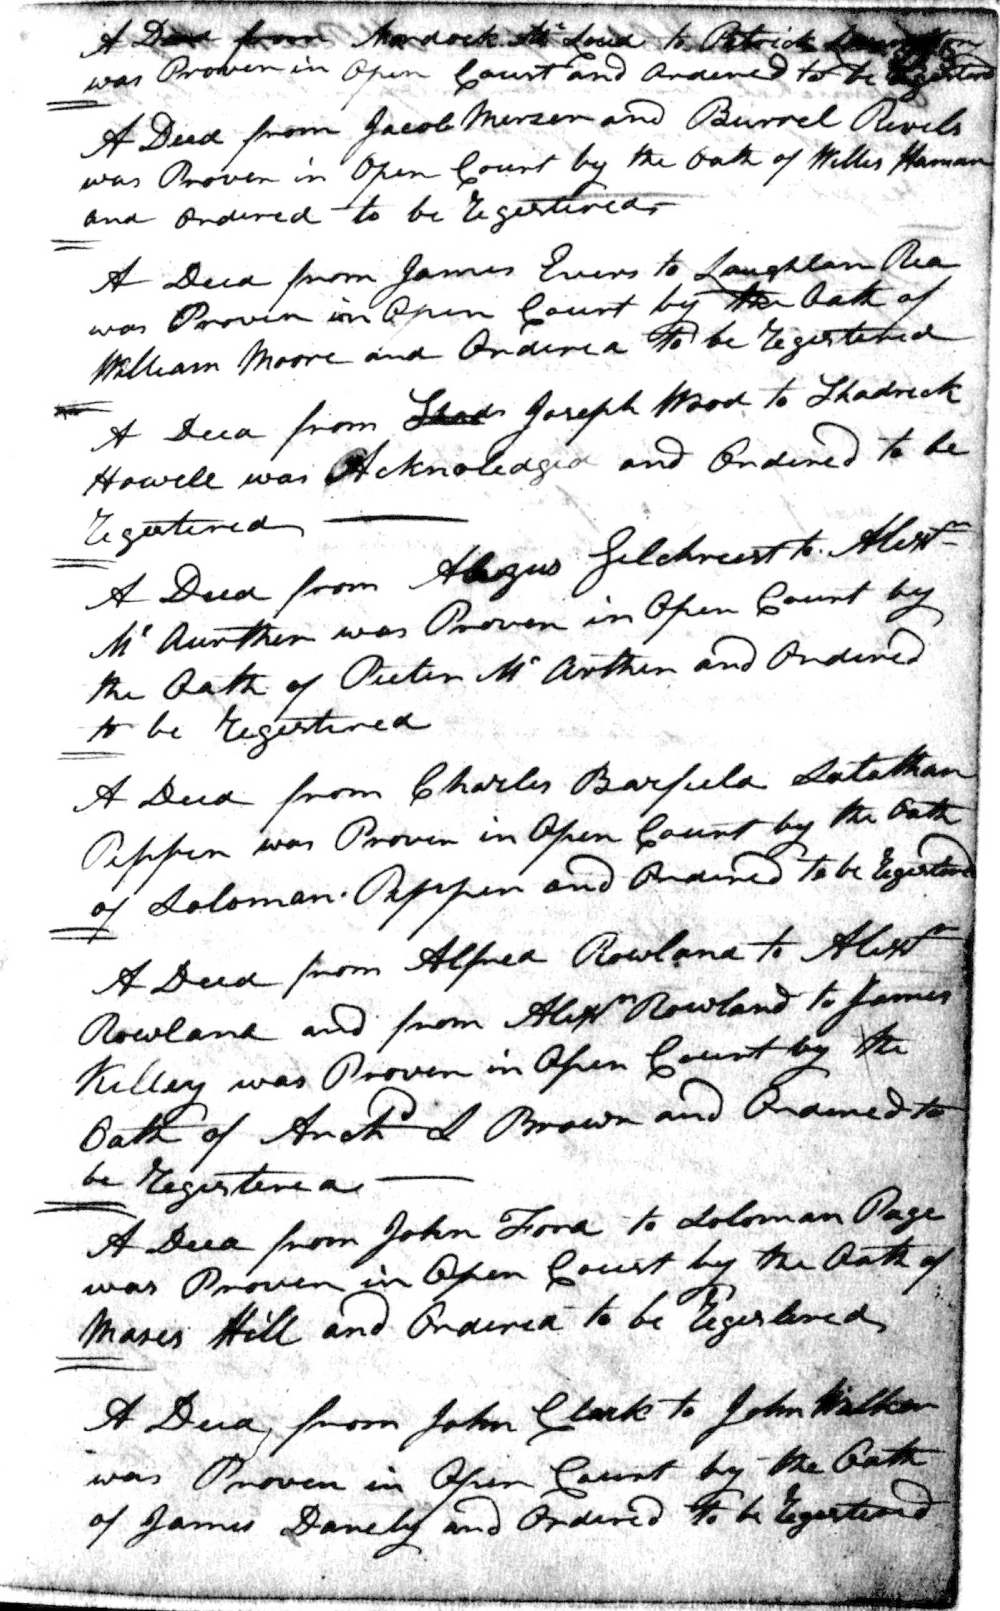 A Deed from Murdock Mc Loud to Patrick
was Proven in Open Court and Ordered to be Registered
A Deed from Jacob Mercer and Burrel Revels
was Proven in Open Court by the Oath of Willis Haman
and Ordered to be Registered
A Deed from James Evers to Laughlan Rea
was Proven in Open Court by the Oath of
William Moore and Ordered to be Registered
A Deed from Shad Joseph Wood to Shadrick
Howell was Acknoledged and Ordered to be
Registered
A Deed from Angus Gilchreest to Alexr
Mc Aurther was Proven in Open Court by
the Oath of Peeter Mc Arther and Ordered
to be Registered
A Deed from Charles Barfield
Peppper was Proven in Open Court by the Oath
of Soloman Pepper and Ordered to be Registered
A Deed from Alfred Rowland to Alexr
Rowland and from Alexr Rowland to James
Killey was Proven in Open Court by the
Oath of Archd S Brown and Ordered to
be Registered
A Deed from John Ford to Soloman Page
was Proven in Open Court by the Oath of
Moses Hill and Ordered to be Registered
A Deed from John Clark to John Walker
was Proven in Open Court by the Oath
of James Danely and Ordered to be Registered